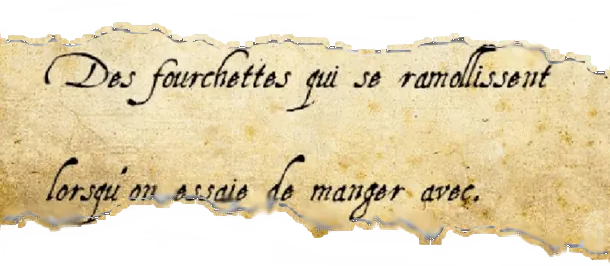 Des fourchettes qui se ramollissent
lorsqu'on essaie de manger avec.